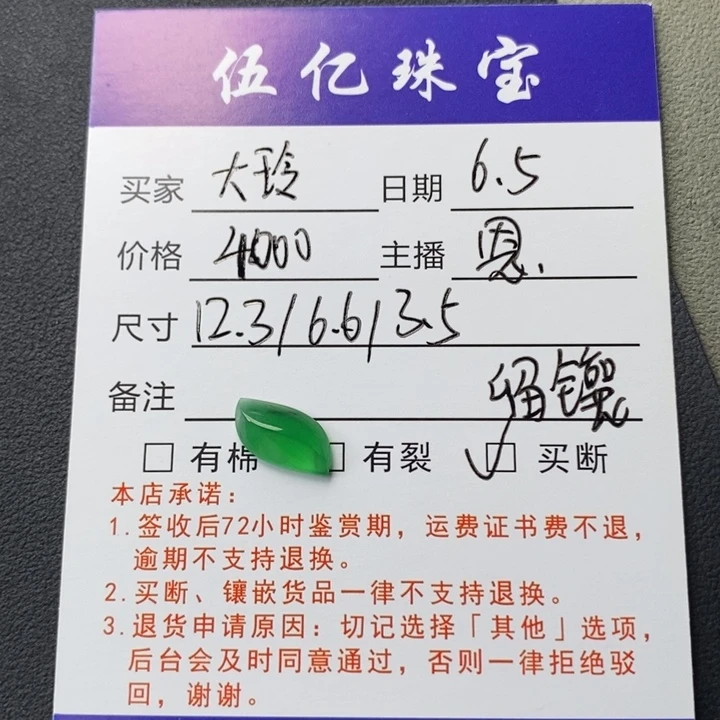 伍亿珠宝
买家 大玲 日期 6.5
价格 4000 主播 恩.
尺寸 12.3/6.6/3.5
备注 留镶
□ 有棉 □ 有裂 ✓□ 买断
本店承诺：
1.签收后72小时鉴赏期，运费证书费不退，
逾期不支持退换。
2.买断、镶嵌货品一律不支持退换。
3.退货申请原因：切记选择「其他」选项，
后台会及时同意通过，否则一律拒绝驳
回，谢谢。